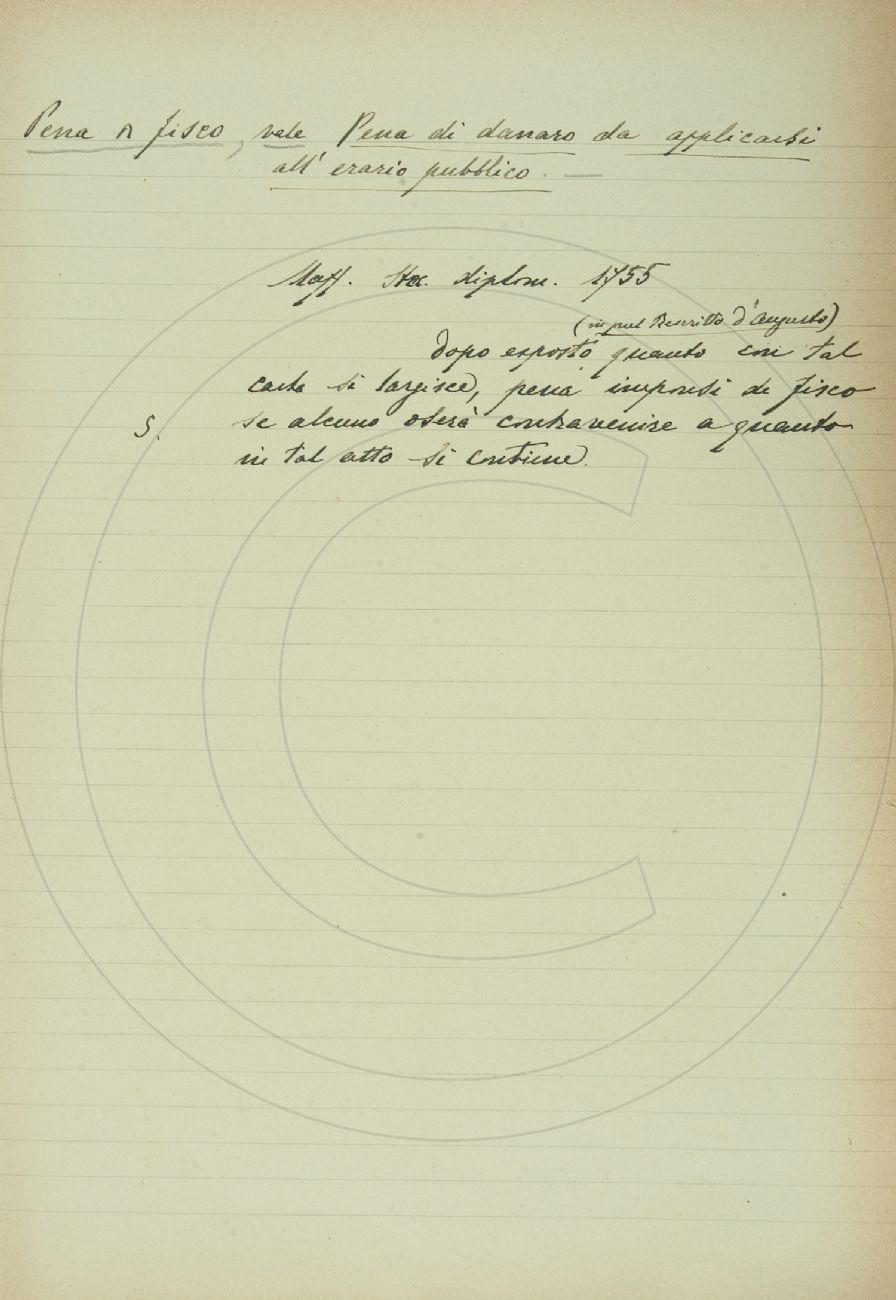 Pena a fisco, vale Pena di danaro da applicarsi
all' erario pubblico.
Maff. Stor. diplom. 1755
(in quel Rescritto d'Augusto)
Dopo esposto quanto con tal
carta si largisce, pena imponsi di fisco
S. se alcuno oserà contravenire a quanto
in tal atto si contiene.